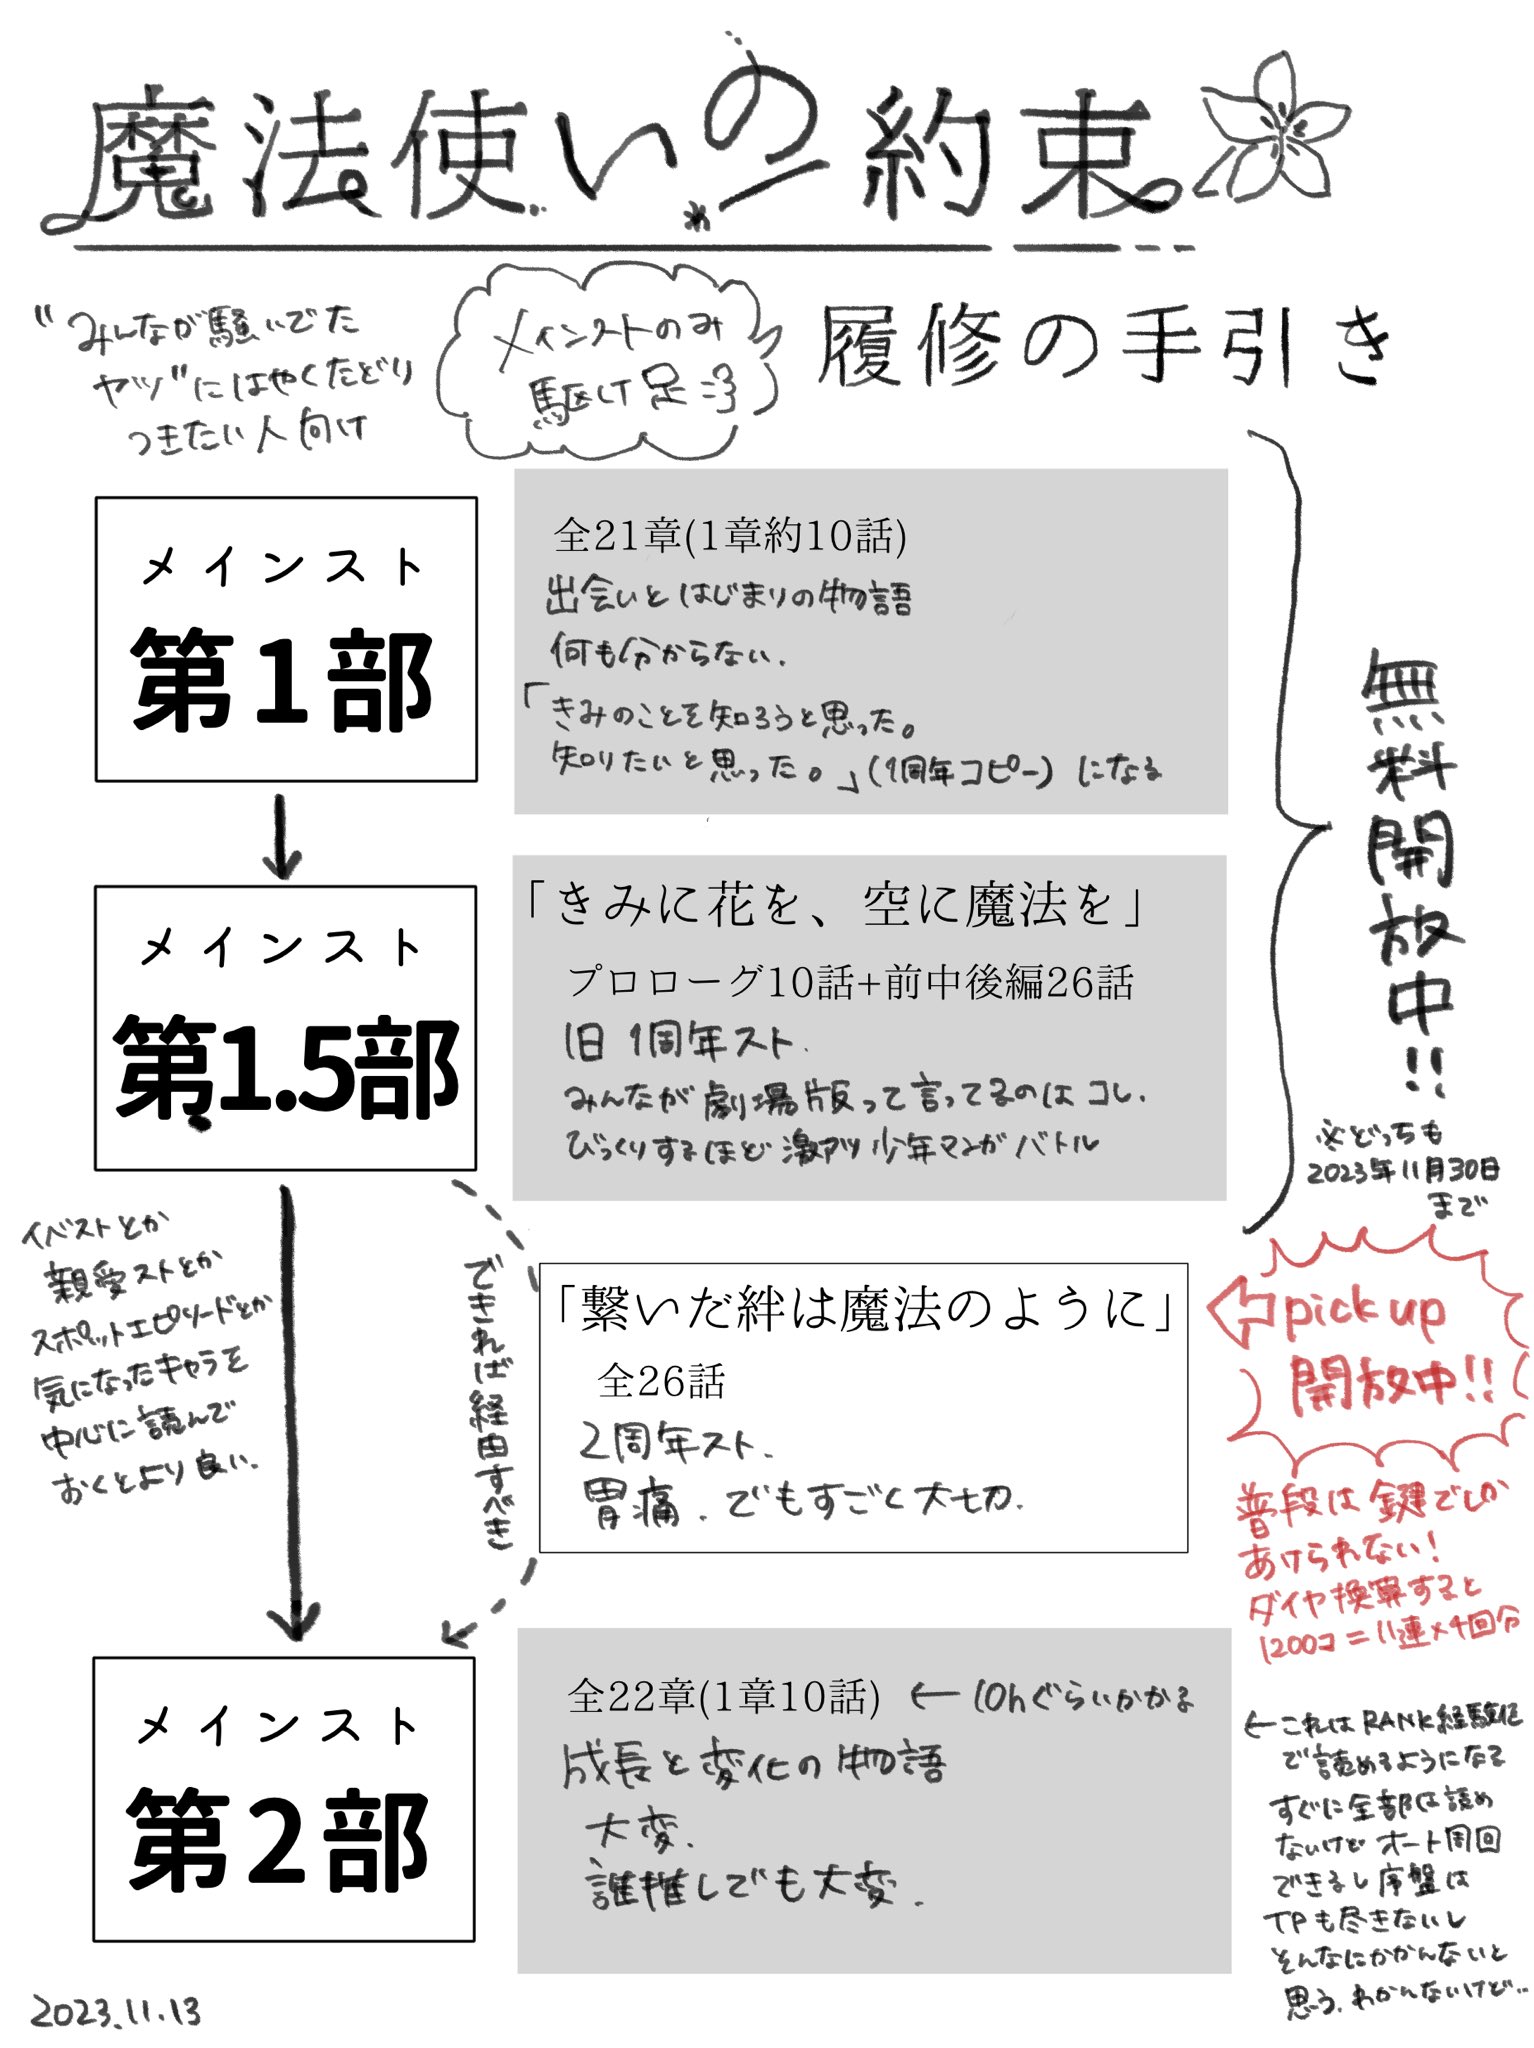 魔法使いの約束
履修の手引き
メインストのみ
駆け足ご
"みんなが騒いでた
ヤツ"にはやくたどり
つきたい人向け
メインスト
第1部
全21章(1章約10話)
出会いとはじまりの物語
何も分からない.
「きみのことを知ろうと思った。
知りたいと思った。」(1周年コピー)になる
メインスト
第1.5部
「きみに花を、空に魔法を」
プロローグ10話+前中後編26話
旧1周年スト.
みんなが劇場版って言ってるのはコレ.
びっくりするほど激アツ少年マンガバトル
無料開放中!!
※どっちも
2023年11月30日
まで
イベストとか
親愛ストとか
スポットエピソードとか
気になったキャラを
中心に読んで
おくとより良い.
できれば経由すべき
「繋いだ絆は魔法のように」
全26話
2周年スト.
胃痛.でもすごく大切.
pick up
開放中!!
普段は鍵でしか
あけられない!
ダイヤ換算すると
1200コ=11連×4回分
メインスト
第2部
全22章(1章10話) ← 10hぐらいかかる
成長と変化の物語
大変.
誰推しでも大変.
←これはRANK経験値
で読めるようになる
すぐに全部は読め
ないけどオート周回
できるし序盤は
TPも尽きないし
そんなにかかんないと
思う.わかんないけど..
2023.11.13